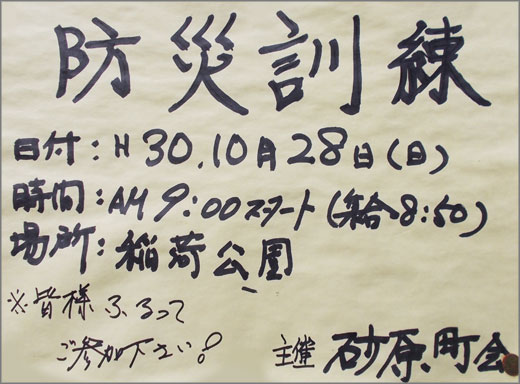 防災訓練
日付：H30.10月28日(日)
時間：AM9:00スタート(集合8:50)
場所：稲荷公園
※皆様ふるって
ご参加下さい!
主催 砂原町会